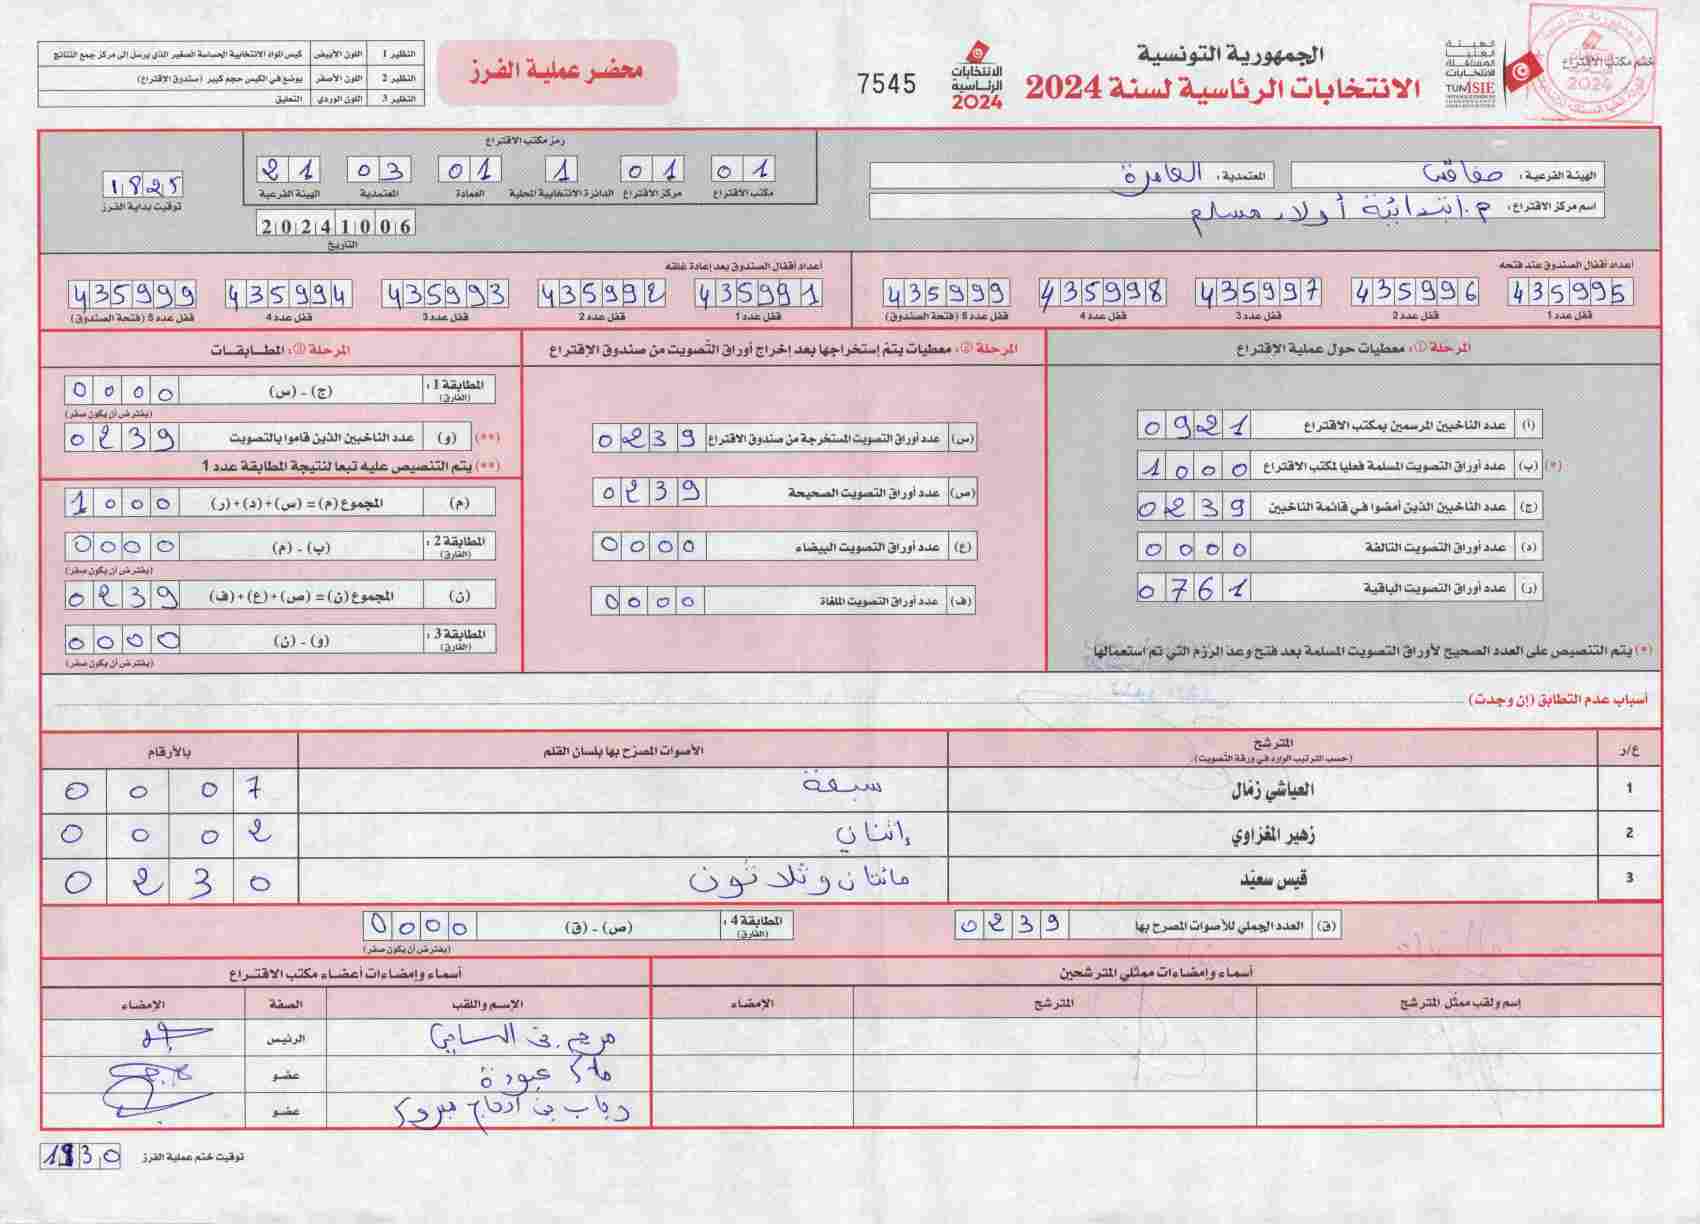 الجمهورية التونسية
الانتخابات الرئاسية لسنة 2024
ختم مكتب الاقتراع
الهيئة
العليا
المستقلة
للانتخابات
TUNISIE
الانتخابات
الرئاسية
2024
7545
محضر عملية الفرز
النظير 1 اللون الأبيض كيس المواد الانتخابية الحساسة الصغير الذي يرسل إلى مركز جمع النتائج
النظير 2 اللون الأصفر يوضع في الكيس حجم كبير (صندوق الاقتراع)
النظير 3 اللون الوردي التعليق
الهيئة الفرعية: صفاقس
المعتمدية: العامرة
اسم مركز الاقتراع: م. ابتدائية أولاد مسلم
رمز مكتب الاقتراع
01 01 1 01 03 21
مكتب الاقتراع مركز الاقتراع الدائرة الانتخابية المحلية العمادة المعتمدية الهيئة الفرعية
20241006
التاريخ
1825
توقيت بداية الفرز
أعداد أقفال الصندوق عند فتحه
435995 435996 435997 435998 435999
قفل عدد 1 قفل عدد 2 قفل عدد 3 قفل عدد 4 قفل عدد 5 (فتحة الصندوق)
أعداد أقفال الصندوق بعد إعادة غلقه
435991 435992 435993 435994 435999
قفل عدد 1 قفل عدد 2 قفل عدد 3 قفل عدد 4 قفل عدد 5 (فتحة الصندوق)
المرحلة ①: معطيات حول عملية الإقتراع
(أ) عدد الناخبين المرسمين بمكتب الاقتراع 0921
(*) (ب) عدد أوراق التصويت المسلمة فعليا لمكتب الاقتراع 1000
(ج) عدد الناخبين الذين أمضوا في قائمة الناخبين 0239
(د) عدد أوراق التصويت التالفة 0000
(ر) عدد أوراق التصويت الباقية 0761
(*) يتم التنصيص على العدد الصحيح لأوراق التصويت المسلمة بعد فتح وعد الرزم التي تم استعمالها
المرحلة ②: معطيات يتم إستخراجها بعد إخراج أوراق التصويت من صندوق الاقتراع
(س) عدد أوراق التصويت المستخرجة من صندوق الاقتراع 0239
(ص) عدد أوراق التصويت الصحيحة 0239
(ع) عدد أوراق التصويت البيضاء 0000
(ف) عدد أوراق التصويت الملغاة 0000
المرحلة ③: المطابقات
المطابقة 1: (الفارق) (ج) - (س) 0000
(يفترض أن يكون صفر)
(**) (و) عدد الناخبين الذين قاموا بالتصويت 0239
(**) يتم التنصيص عليه تبعا لنتيجة المطابقة عدد 1
(م) المجموع (م) = (س)+(د)+(ر) 1000
المطابقة 2: (الفارق) (ب) - (م) 0000
(يفترض أن يكون صفر)
(ن) المجموع (ن) = (ص)+(ع)+(ف) 0239
المطابقة 3: (الفارق) (و) - (ن) 0000
(يفترض أن يكون صفر)
أسباب عدم التطابق (إن وجدت)
ع/ر المترشح الأصوات المصرح بها بلسان القلم بالأرقام
(حسب الترتيب الوارد في ورقة التصويت)
1 العياشي زمال سبعة 0007
2 زهير المغزاوي إثنان 0002
3 قيس سعيد مائتان وثلاثون 0230
(ق) العدد الجملي للأصوات المصرح بها 0239
المطابقة 4: (الفارق) (ص) - (ق) 0000
(يفترض أن يكون صفر)
أسماء وإمضاءات ممثلي المترشحين
إسم ولقب ممثل المترشح المترشح الإمضاء
أسماء وإمضاءات أعضاء مكتب الاقتراع
الإسم واللقب الصفة الإمضاء
مريم بن الساسي الرئيس
عبودة عضو
رباب بن عضو
توقيت ختم عملية الفرز 1930